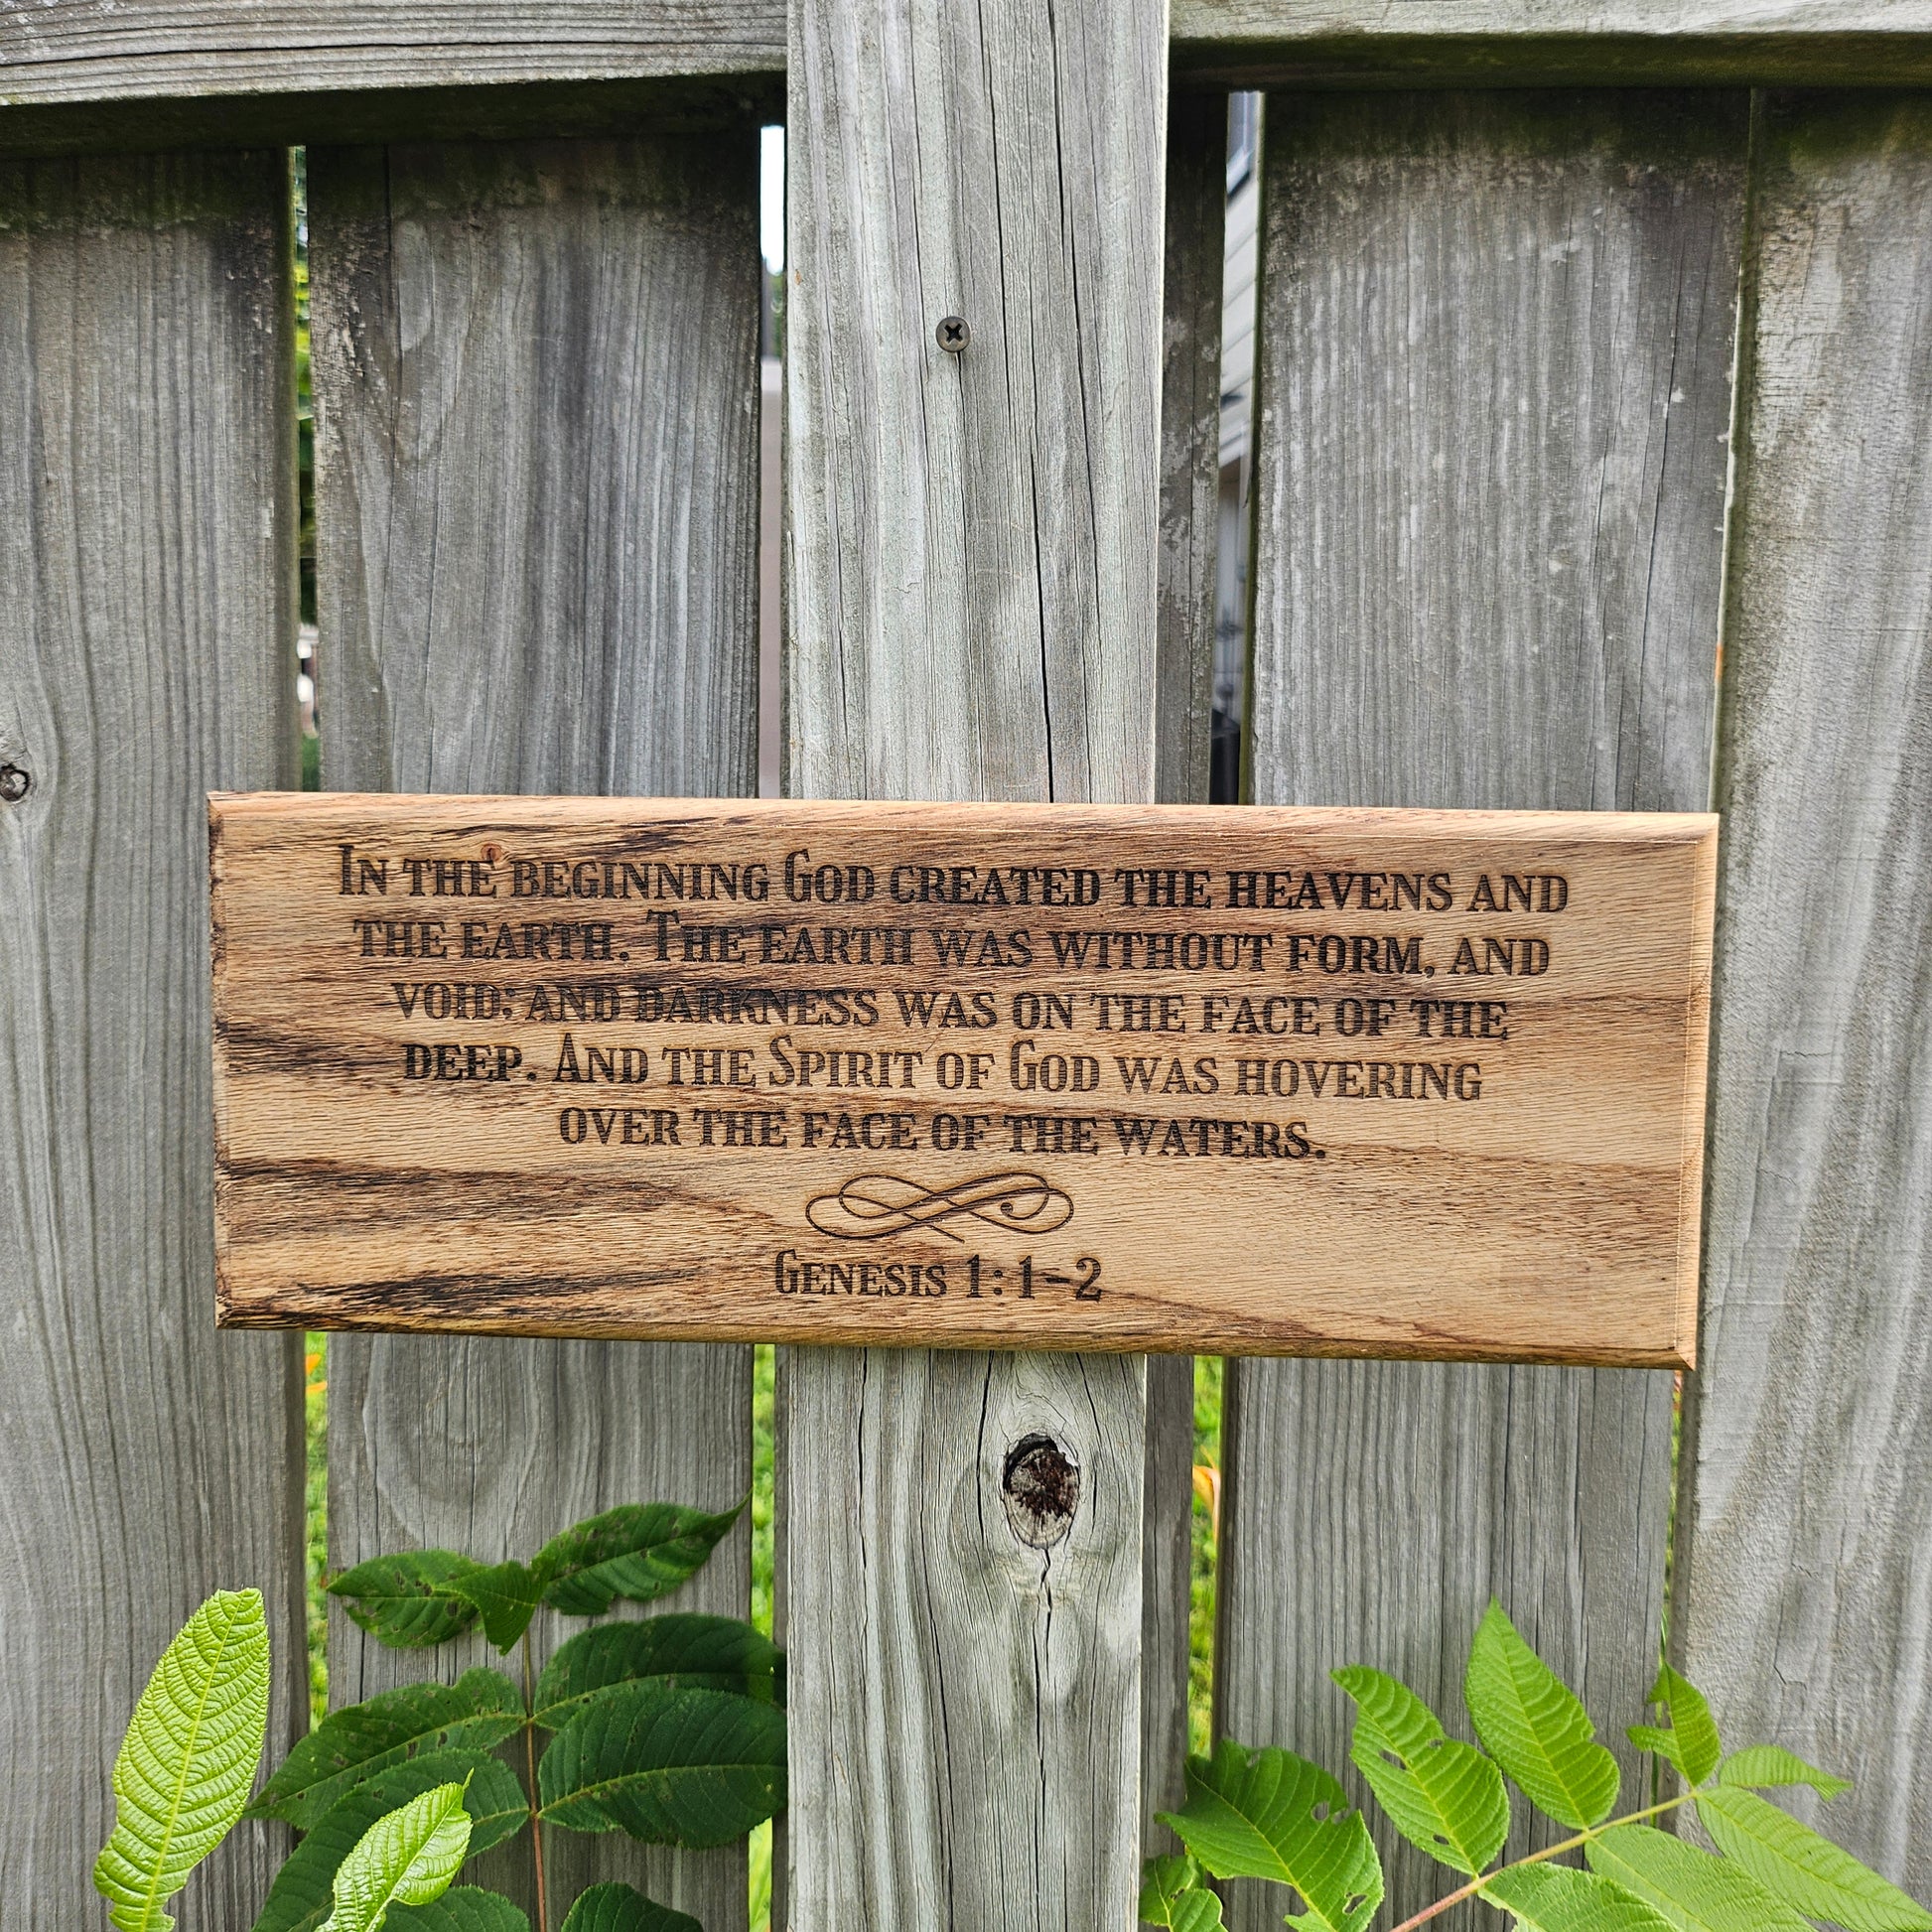 In the beginning God created the heavens and
the earth. The earth was without form, and
void; and darkness was on the face of the
deep. And the Spirit of God was hovering
over the face of the waters.
Genesis 1:1-2